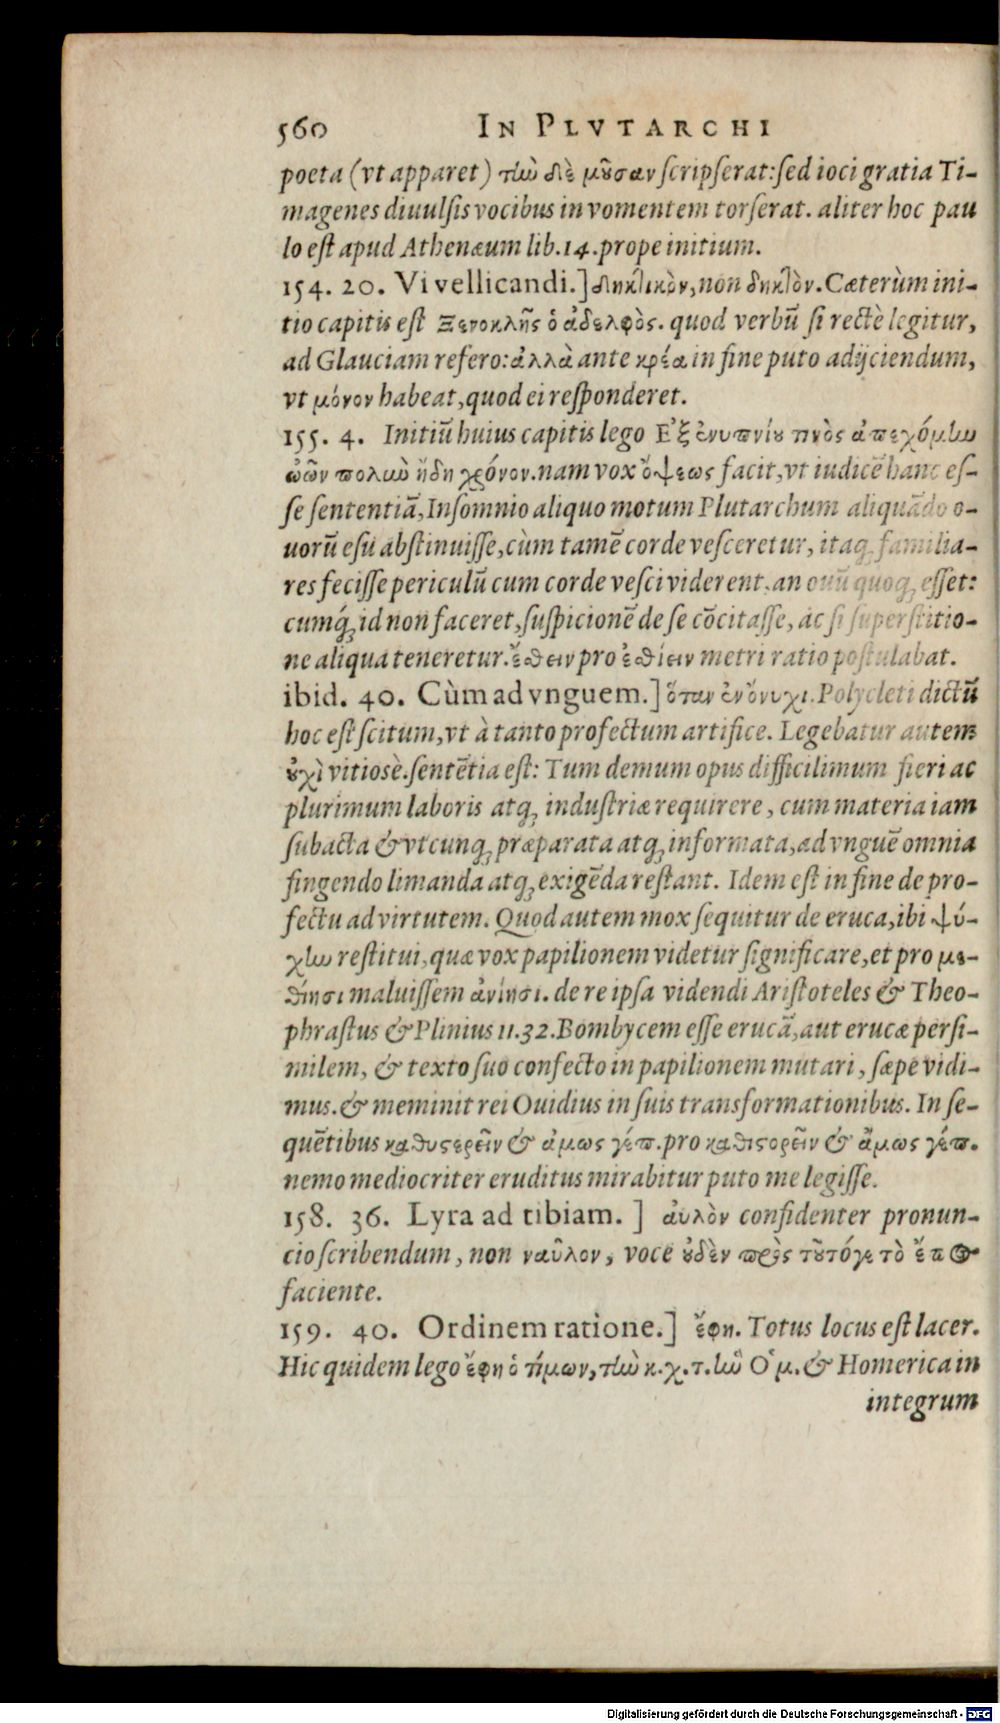 560 IN PLVTARCHI
poeta (vt apparet) τίω δὲ μοῦσαν scripserat: sed ioci gratia Ti-
magenes diuulsis vocibus in vomentem torserat. aliter hoc pau
lo est apud Athenæum lib.14. prope initium.
154. 20. Vi vellicandi.] δηκτικὸν, non δηκτὸν. Cæterùm ini-
tio capitis est Ξενοκλῆς ὁ ἀδελφὸς. quod verbũ si rectè legitur,
ad Glauciam refero: ἀλλὰ ante κρέα in fine puto adijciendum,
vt μόνον habeat, quod ei responderet.
155. 4. Initiũ huius capitis lego Ἐξ ἐνυπνίου τινὸς ἀπεχόμην
ὠῶν πολιὼ ἤδη χρόνον. nam vox ὄψεως facit, vt iudicẽ hanc es-
se sententiã, Insomnio aliquo motum Plutarchum aliquãdo o-
uorũ esu abstinuisse, cùm tamẽ corde vesceretur, itaq; familia-
res fecisse periculũ cum corde vesci viderent, an ouũ quoq; esset:
cumq́; id non faceret, suspicionẽ de se cõcitasse, ac si superstitio-
ne aliqua teneretur. ἔσθειν pro ἐσθίειν metri ratio postulabat.
ibid. 40. Cùm ad vnguem.] ὅταν ἐν ὄνυχι. Polycleti dictũ
hoc est scitum, vt à tanto profectum artifice. Legebatur autem
οὐχὶ vitiosè. sentẽtia est: Tum demum opus difficilimum fieri ac
plurimum laboris atq; industriæ requirere, cum materia iam
subacta & vtcunq; præparata atq; informata, ad vnguẽ omnia
fingendo limanda atq; exigẽda restant. Idem est in fine de pro-
fectu ad virtutem. Quod autem mox sequitur de eruca, ibi ψύ-
χην restitui, quæ vox papilionem videtur significare, et pro με-
θίησι maluissem ἀνίησι. de re ipsa videndi Aristoteles & Theo-
phrastus & Plinius 11.32. Bombycem esse erucã, aut erucæ persi-
milem, & texto suo confecto in papilionem mutari, sæpe vidi-
mus. & meminit rei Ouidius in suis transformationibus. In se-
quẽtibus καθυστερεῖν & ἀμως γέπ. pro καθιστορεῖν & ἄμως γέπ.
nemo mediocriter eruditus mirabitur puto me legisse.
158. 36. Lyra ad tibiam.] αὐλὸν confidenter pronun-
cio scribendum, non ναῦλον, voce οὐδὲν πρὸς τοῦτό γε τὸ ἔπος
faciente.
159. 40. Ordinem ratione.] ἔφη. Totus locus est lacer.
Hic quidem lego ἔφη ὁ τίμων, τὴν κ. χ. τ. ἣν Ὅμ. & Homerica in
integrum
Digitalisierung gefördert durch die Deutsche Forschungsgemeinschaft - DFG